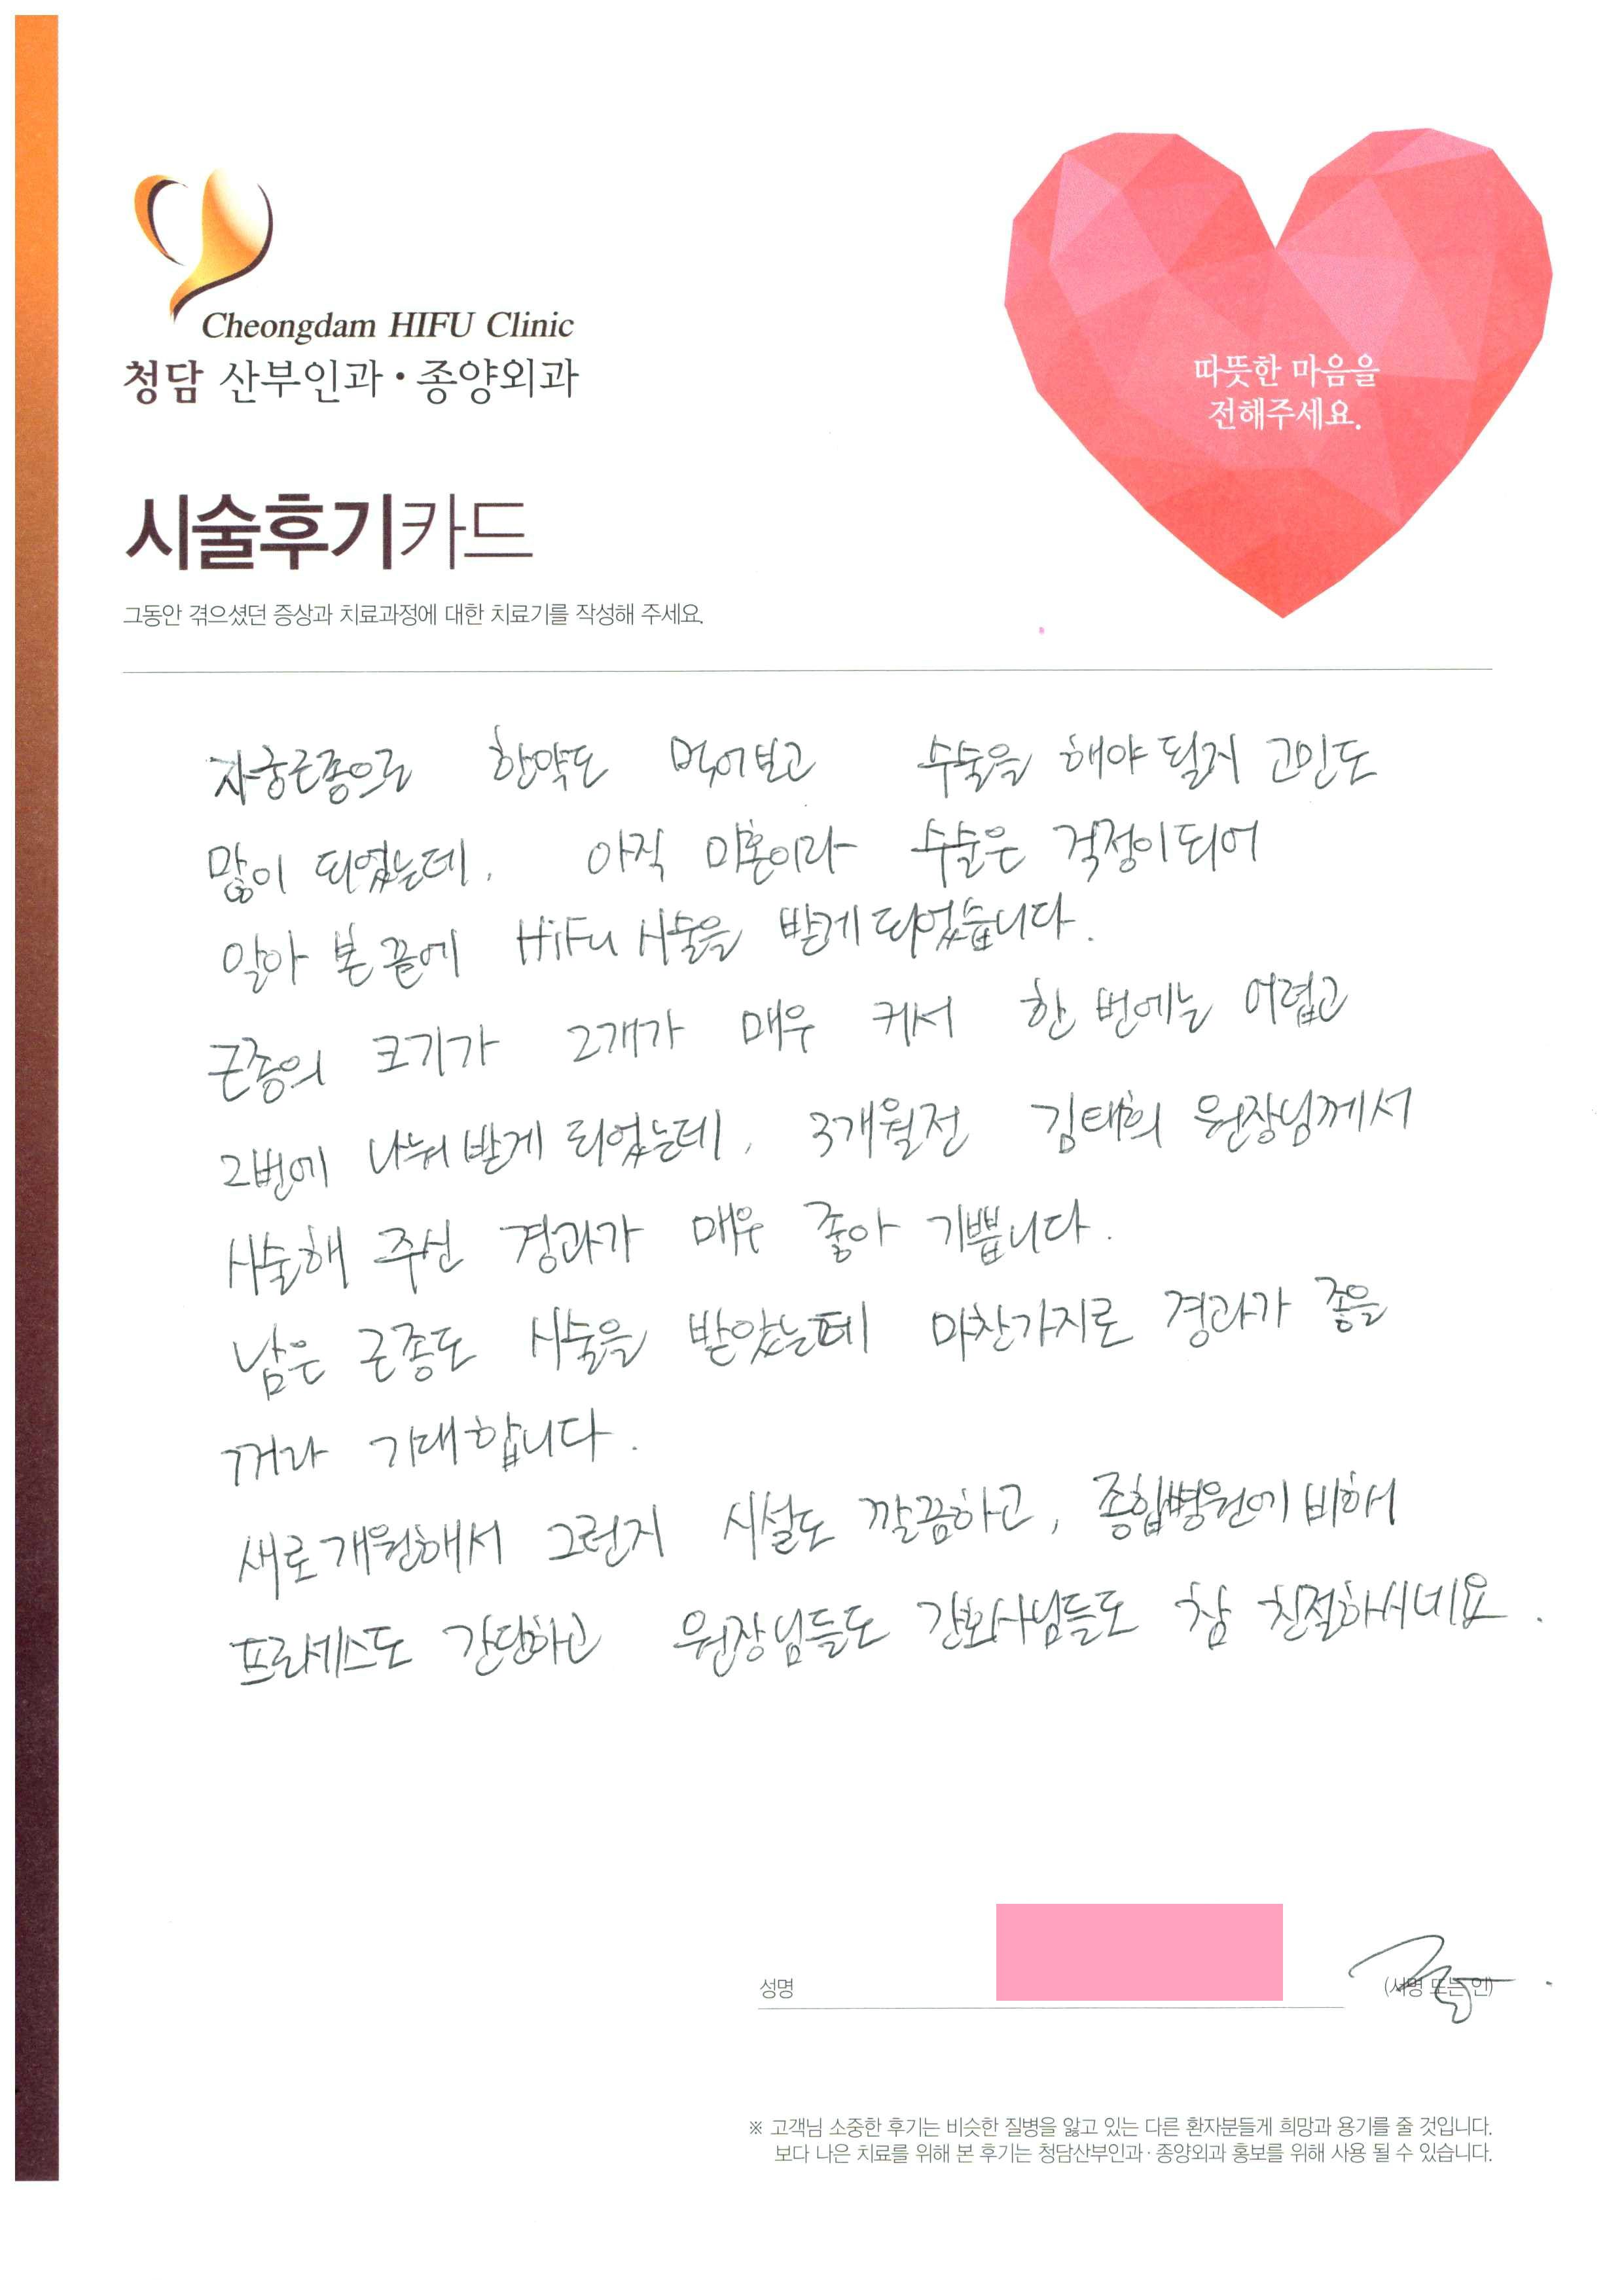 Cheongdam HIFU Clinic
청담 산부인과·종양외과
따뜻한 마음을
전해주세요.
시술후기카드
그동안 겪으셨던 증상과 치료과정에 대한 치료기를 작성해 주세요.
자궁근종으로 한약도 먹어보고 수술을 해야 될지 고민도
많이 되었는데, 아직 미혼이라 수술은 걱정이되어
알아 본 끝에 HiFu 시술을 받게 되었습니다.
근종의 크기가 2개가 매우 커서 한 번에는 어렵고
2번에 나눠 받게 되었는데, 3개월전 김태희 원장님께서
시술해 주신 경과가 매우 좋아 기쁩니다.
남은 근종도 시술을 받았는데 마찬가지로 경과가 좋을
꺼라 기대합니다.
새로 개원해서 그런지 시설도 깔끔하고, 종합병원에 비해서
프로세스도 간단하고 원장님들도 간호사님들도 참 친절하시네요.
성명 (서명 또는 인)
※ 고객님 소중한 후기는 비슷한 질병을 앓고 있는 다른 환자분들게 희망과 용기를 줄 것입니다.
보다 나은 치료를 위해 본 후기는 청담산부인과·종양외과 홍보를 위해 사용 될 수 있습니다.